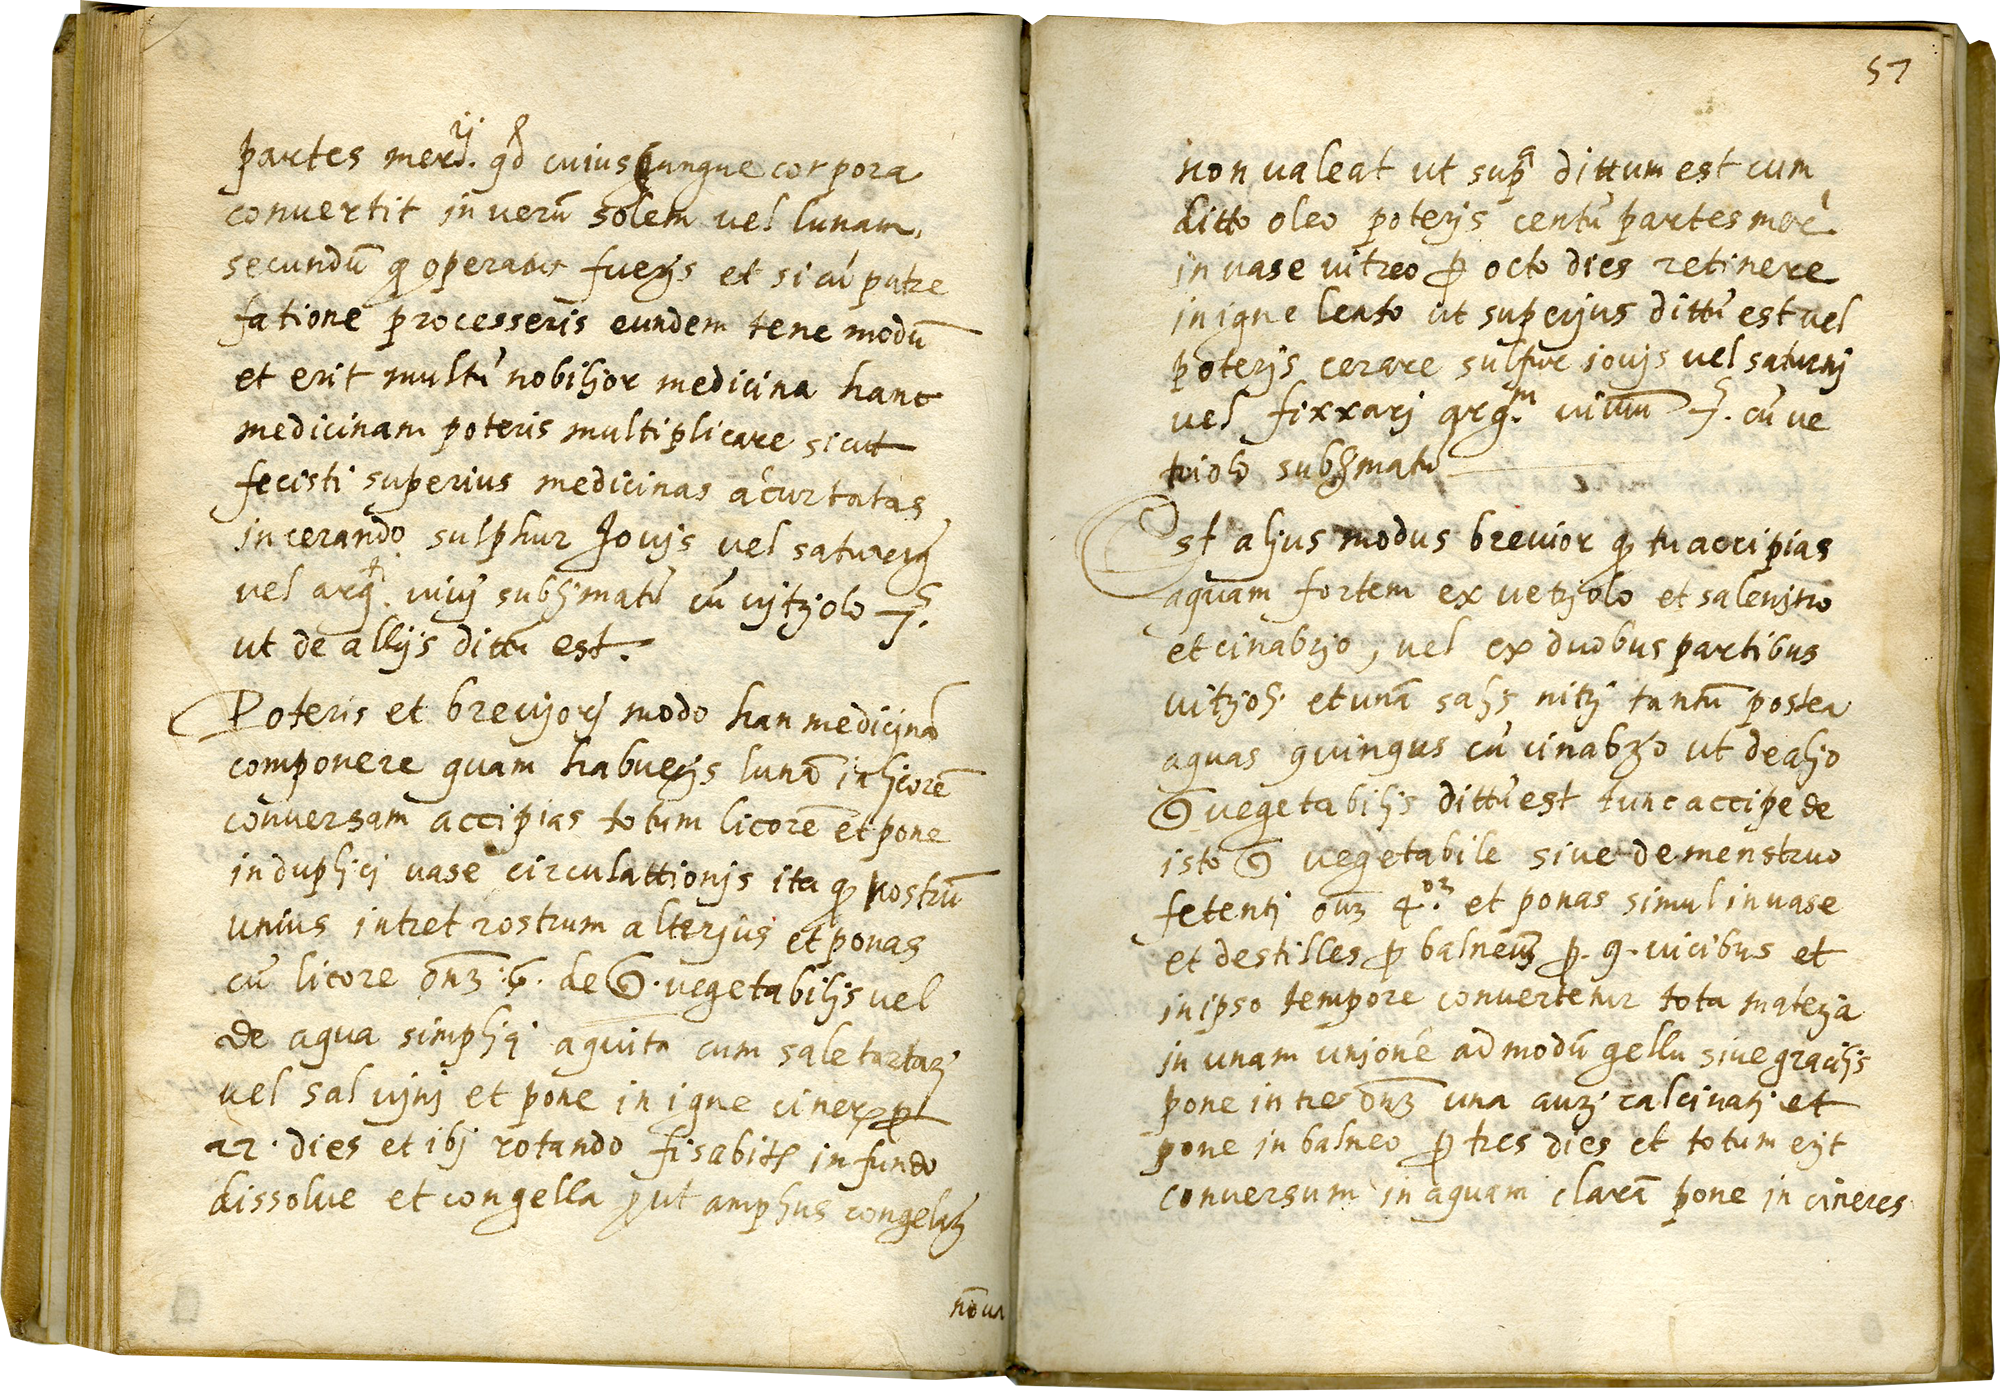 partes mercrij. qd cuiuscunque corpora
convertit in verū solem vel lunam,
secundū q operatus fuerjs et si cū putre
fatione processeris eundem tene modū
et erit multū nobiljor medicina hanc
medicinam poteris multiplicare sicut
fecisti superius medicinas acurtatas
in cerando sulphur Jovjs vel saturnj
vel argt. vivj subljmatū cū vjtrjolo 7.
ut de allijs dittū est.
Poteris et brevjorj modo han medicjnā
componere quam habuerjs lunā in ljcorē
conversam accipias totum licorē et pone
in dupljcj vase circulattionjs ita q rostrū
unius intret rostrum alterjus et ponas
cū licore onz :6. de vegetabiljs vel
de aqua simpljcj aquita cum sale tartarj
vel sal vjnj et pone in igne cinerū p
22. dies et ibj rotando fisabitr in fundo
dissolve et congella put ampljus congelarj
nō va
57
non valeat ut supra dittum est cum
ditto oleo poterjs centū partes merc
in vase vitreo p octo dies retinere
in igne lento ut superjus dittū est vel
poterjs cerare sulfur iovjs vel saturnj
vel fixxarj argm. vivum 7. cū ve
triolo subljmatū
Est aljus modus brevior q tu accipias
aquam fortem ex vetrjolo et salenjtro
et cinabrjo, vel ex duobus partibus
vitrjolj. et unā saljs nitrj tantū postea
aquas quinque cū cinabrjo ut de aljo
vegetabiljs dittū est tunc accipe de
isto vegetabile sive de menstruo
fetentj onz 4or. et ponas simul in vase
et destilles p balneum p. 9. vicibus et
in ipso tempore convertetur tota materja
in unam unjonē ad modū gellu sive graciljs
pone inter onz una aurj calcinatj et
pone in balneo p tres dies et totum erjt
conversum in aquam clarā pone in cineres